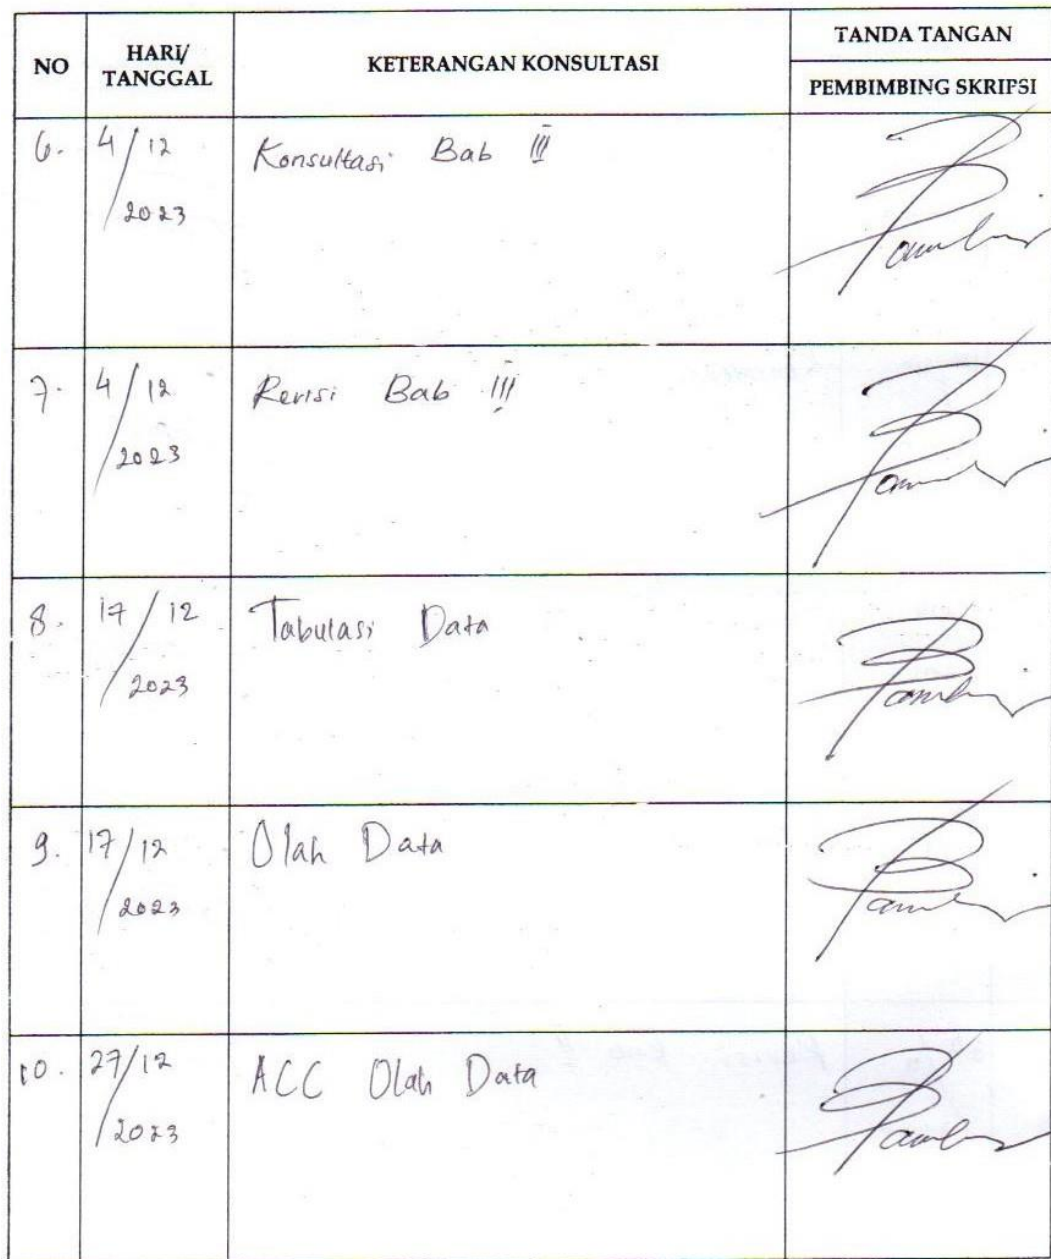 NO
HARI/
TANGGAL
KETERANGAN KONSULTASI
TANDA TANGAN
PEMBIMBING SKRIPSI
6. 4/12
2023
Konsultasi Bab III
7. 4/12
2023
Revisi Bab III
8. 17/12
2023
Tabulasi Data
9. 17/12
2023
Olah Data
10. 27/12
2023
ACC Olah Data